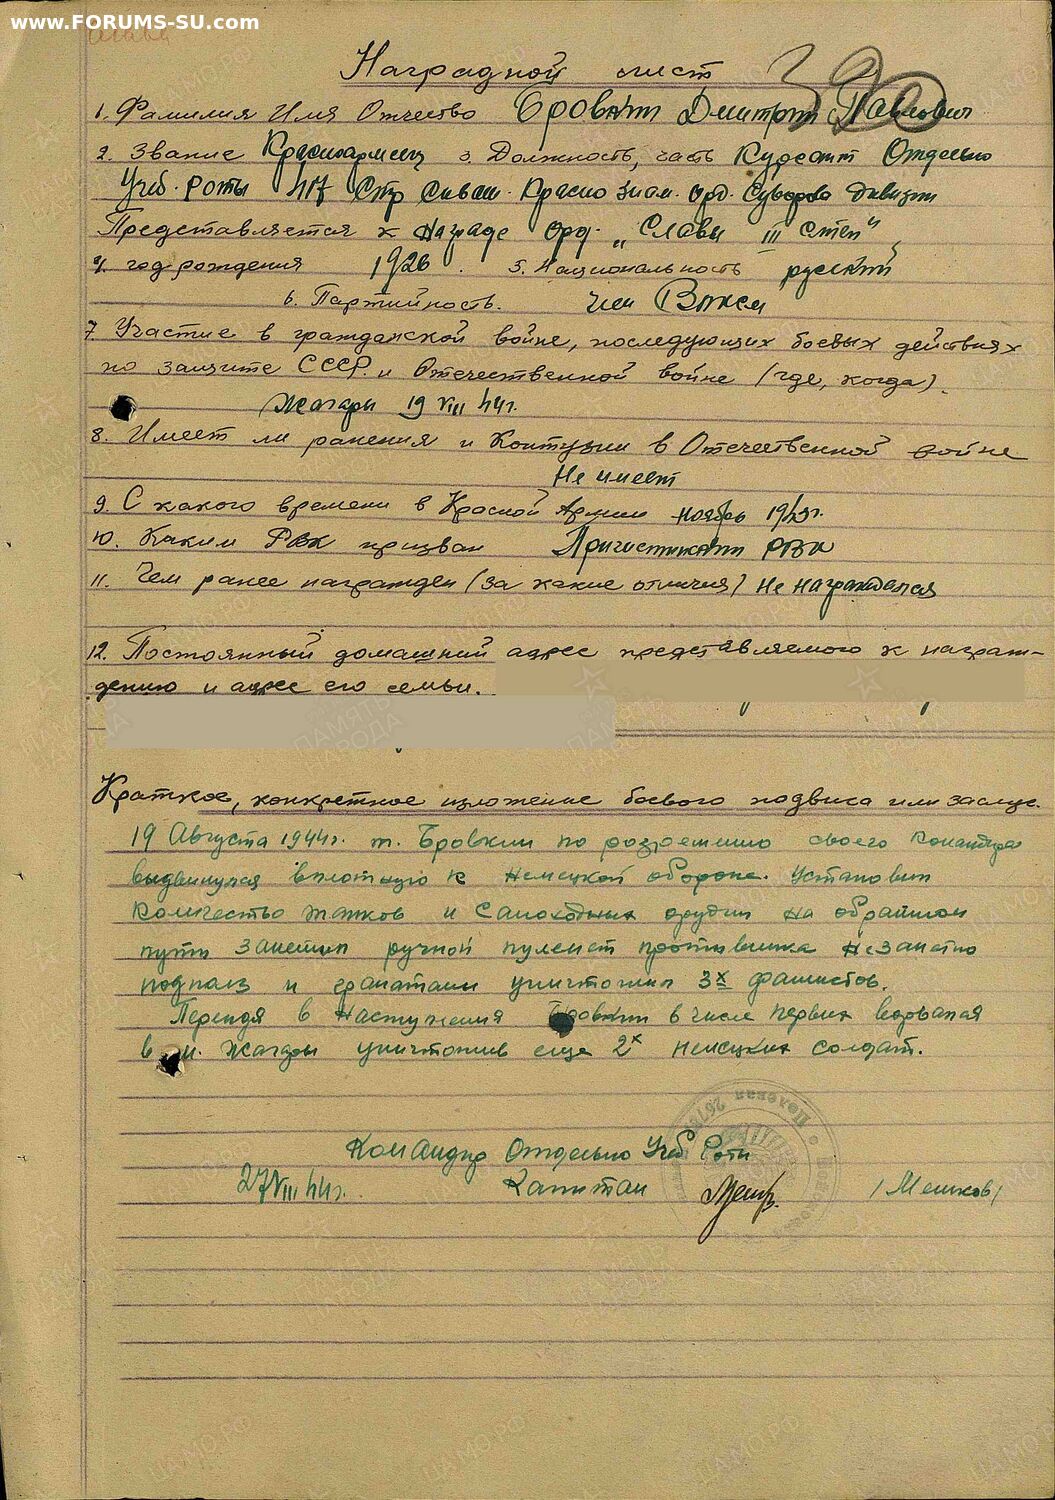 www.FORUMS-SU.com
Наградной лист
1. Фамилия Имя Отчество Бровкин Дмитрий Павлович
2. Звание Красноармеец 3. Должность, часть Курсант Отдельно
Учеб. роты 417 Стр Сиваш. Красно Знам. орд. Суворова дивизии
Представляется к Награде орд. „Славы III степ"
4. год рождения 1926. 5. Национальность русский
6. Партийность. член Влксм
7. Участие в гражданской войне, последующих боевых действиях
по защите СССР. и Отечественной войне (где, когда).
Жагары 19 VIII 44г.
8. Имеет ли ранения и Контузии в Отечественной войне
Не имеет
9. С какого времени в Красной Армии ноябрь 1943г.
10. Каким РВК призван РВК
11. Чем ранее награжден (за какие отличия) Не награждался
12. Постоянный домашний адрес представляемого к награж-
дению и адрес его семьи.
Краткое, конкретное изложение боевого подвига или заслуг.
19 Августа 1944г. т. Бровкин по розрешию своего командира
выдвинулся вплотную к Немецкой обороне. Установил
количество танков и самоходных орудий на обратном
пути заметил ручной пулемет противника незаметно
подполз и гранатами уничтожил 3х фашистов.
Перейдя в Наступления Бровкин в числе первых ворвался
в м. Жагары уничтожив еще 2х немецких солдат.
Командир Отдельно Учеб Роти
27 VIII 44г. Капитан /Мешков/